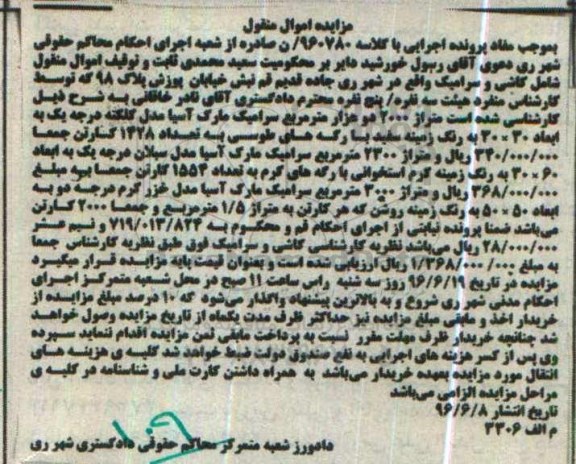 مزایده اموال منقول
بموجب مفاد پرونده اجرایی با کلاسه ۹۶۰۷۸۰/ ن صادره از شعبه اجرای احکام محاکم حقوقی
شهر ری دعوی آقای رسول خورشید دایر بر محکومیت سعید محمدی ثابت و توقیف اموال منقول
شامل کاشی و سرامیک واقع در شهر ری جاده قدیم قم نبش خیابان پوزش پلاک ۹۸ که توسط
کارشناس منفرد هیئت سه نفره/ پنج نفره محترم دادگستری آقای نادر خاقانی به شرح ذیل
کارشناسی شده است متراژ ۲۰۰۰ دو هزار مترمربع سرامیک مارک آسیا مدل کلکته درجه یک به
ابعاد ۳۰*۳۰ به رنگ زمینه سفید با رگه های طوسی به تعداد ۱۴۲۸ کارتن جمعا
۳۲۰/۰۰۰/۰۰۰ ریال و متراژ ۲۳۰۰ مترمربع سرامیک مارک آسیا مدل سیلان درجه یک به ابعاد
۶۰*۳۰ به رنگ زمینه کرم استخوانی با رگه های کرم به تعداد ۱۵۵۳ کارتن جمعا به مبلغ
۳۶۸/۰۰۰/۰۰۰ ریال و متراژ ۳۰۰۰ مترمربع سرامیک مارک آسیا مدل خزر کرم درجه دو به
ابعاد ۵۰*۵۰ به رنگ زمینه روشن که هر کارتن به متراژ ۱/۵ مترمربع و جمعا ۲۰۰۰ کارتن
می باشد ضمنا پرونده نیابتی از اجرای احکام قم و محکوم به ۷۱۹/۰۱۳/۸۲۳ و نیم عشر
۲۸/۰۰۰/۰۰۰ ریال می‌باشد نظریه کارشناسی کاشی و سرامیک فوق طبق نظریه کارشناس جمعا
به مبلغ ۱/۳۶۸/۰۰۰/۰۰۰ ریال ارزیابی شده است و بعنوان قیمت پایه مزایده قرار میگیرد
مزایده در تاریخ ۹۶/۶/۱۹ روز سه شنبه راس ساعت ۱۱ صبح در محل شعبه متمرکز اجرای
احکام مدنی شهر ری شروع و به بالاترین پیشنهاد واگذار می‌شود که ۱۰ درصد مبلغ مزایده از
خریدار اخذ و مابقی مبلغ مزایده نیز حداکثر ظرف مدت یکماه از تاریخ مزایده وصول خواهد
شد چنانچه خریدار ظرف مهلت مقرر نسبت به پرداخت مابقی ثمن مزایده اقدام ننماید سپرده
وی پس از کسر هزینه های اجرایی به نفع صندوق دولت ضبط خواهد شد کلیه ی هزینه های
انتقال مورد مزایده بعهده خریدار می‌باشد به همراه داشتن کارت ملی و شناسنامه در کلیه ی
مراحل مزایده الزامی می‌باشد
تاریخ انتشار ۹۶/۶/۸
م الف ۳۳۰۶
دادورز شعبه متمرکز محاکم حقوقی دادگستری شهر ری